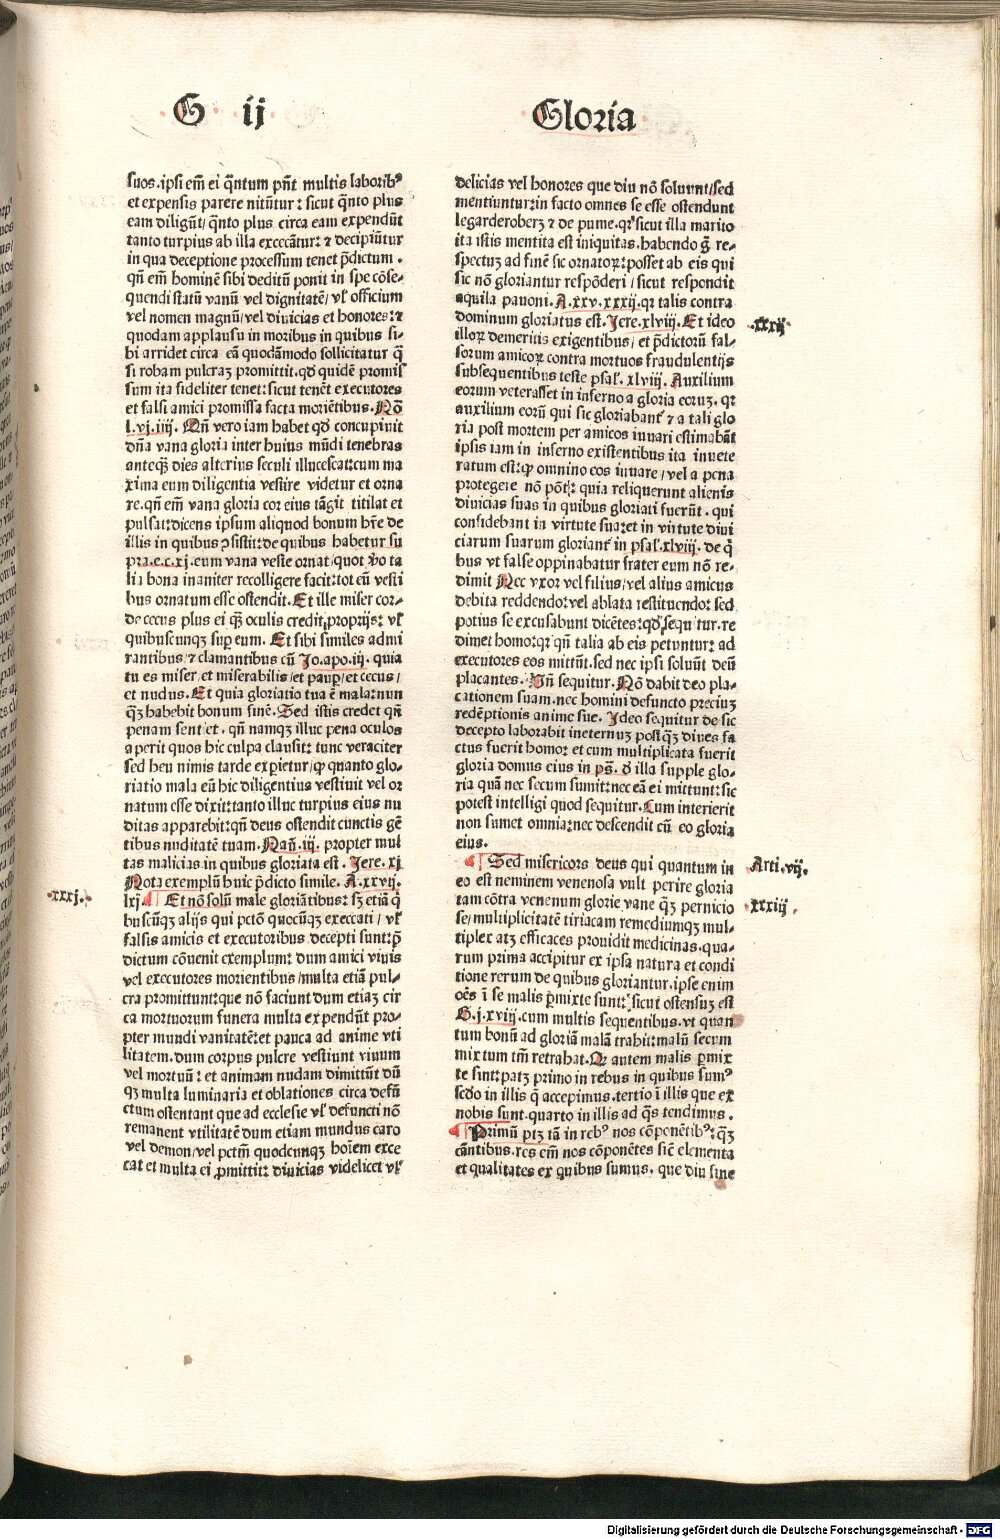 G ij
Gloria
suos. ipsi em̄ ei q̄ntum pn̄t multis laborib⁹
et expensis parere nitūtur: sicut q̄nto plus
eam diligūt/ q̄nto plus circa eam expendūt
tanto turpius ab illa excecātur: ⁊ decipiūtur
in qua deceptione processum tenet p̄dictum.
qn̄ em̄ hominē sibi deditū ponit in spe cōse-
quendi statū vanū vel dignitatē/ vl' officium
vel nomen magnū/ vel diuicias et honores: ⁊
quodam applausu in moribus in quibus si-
bi arridet circa eā quodāmodo sollicitatur q̄
si robam pulcraꝫ promittit. qd̄ quidē promis
sum ita fideliter tenet: sicut tenēt executores
et falsi amici promissa facta moriētibus. Nō
l.vj.iiij. Qn̄ vero iam habet qd̄ concupiuit
dn̄a vana gloria inter huius mūdi tenebras
anteqꝫ dies alterius seculi illucescat: cum ma
xima eum diligentia vestire videtur et orna
re. qn̄ em̄ vana gloria cor eius tāgit titilat et
pulsat: dicens ipsum aliquod bonum hr̄e de
illis in quibus ꝯsistit: de quibus habetur su
pra.e.c.xj. eum vana veste ornat/ quot v̄o ta
lia bona inaniter recolligere facit: tot eū vesti
bus ornatum esse ostendit. Et ille miser cor-
de cecus plus ei qꝫ oculis credit proprijs: vl'
quibuscunqꝫ sup eum. Et sibi similes admi
rantibus/ ⁊ clamantibus cū Jo.apo.iij. quia
tu es miser/ et miserabilis/ et paup̄/ et cecus/
et nudus. Et quia gloriatio tua ē mala: nun
qꝫ habebit bonum finē. Sed istis credet qn̄
penam sentiet. qn̄ namqꝫ illuc pena oculos
aperit quos hic culpa clausit: tunc veraciter
sed heu nimis tarde expietur/ ꝙ quanto glo-
riatio mala eū hic diligentius vestiuit vel or
natum esse dixit: tanto illuc turpius eius nu
ditas apparebit: qn̄ deus ostendit cunctis gē
tibus nuditatē tuam. Nau̅.iij. propter mul
tas malicias in quibus gloriata est. Jere.xj
Nota exemplū huic p̄dicto simile. A.xxvij.
.xxxj.
lxj. Et nō solū male gloriātibus: sꝫ etiā q̄
buscūqꝫ alijs qui pctō quocūqꝫ execcati/ vl'
falsis amicis et executoribus decepti sunt: p̄
dictum cōuenit exemplum: dum amici viuis
vel executores morientibus/ multa etiā pul-
cra promittunt: que nō faciunt dum etiaꝫ cir
ca mortuorum funera multa expendūt pro-
pter mundi vanitatē: et pauca ad anime vti
litatem. dum corpus pulcre vestiunt viuum
vel mortuū: et animam nudam dimittūt dū
qꝫ multa luminaria et oblationes circa defū
ctum ostentant que ad ecclesie vl' defuncti nō
remanent vtilitatē dum etiam mundus caro
vel demon/ vel pctm̄ quodcunqꝫ hoīem exce
cat et multa ei p̄mittit: diuicias videlicet vl'
delicias vel honores que diu nō soluunt/ sed
mentiuntur: in facto omnes se esse ostendunt
legarderoberꝫ ⁊ de pume. qr̄ sicut illa marito
ita istis mentita est iniquitas. habendo g̊ re-
spectuꝫ ad finē sic ornatoꝝ: posset ab eis qui
sic nō gloriantur respōderi/ sicut respondit
aquila pauoni. A.xxv.xxxij. qr talis contra
dominum gloriatus est. Jere.xlviij. Et ideo
.xxxij.
illoꝝ demeritis exigentibus/ et p̄dictorū fal-
sorum amicoꝝ contra mortuos fraudulentijs
subsequentibus teste psal'.xlviij. Auxilium
eorum veterasset in inferno a gloria eoruꝫ. qr
auxilium eorū qui sic gloriabant' ⁊ a tali glo
ria post mortem per amicos iuuari estimabāt
ipsis iam in inferno existentibus ita inuete
ratum est: ꝙ omnino eos iuuare/ vel a pena
protegere nō pōt: quia reliquerunt alienis
diuicias suas in quibus gloriati fuerūt. qui
confidebant in virtute sua: et in virtute diui
ciarum suarum gloriant' in psal'.xlviij. de q̄
bus vt false oppinabatur frater eum nō re-
dimit Nec vxor vel filius/ vel alius amicus
debita reddendo: vel ablata restituendo: sed
potius se excusabunt dicētes: qd̄ sequitur. re
dimet homo: qr qn̄ talia ab eis petuntur: ad
executores eos mittūt. sed nec ipsi soluūt deū
placantes. Vn̄ sequitur. Nō dabit deo pla-
cationem suam. nec homini defuncto preciuꝫ
redēptionis anime sue. Ideo sequitur de sic
decepto laborabit ineternuꝫ postqꝫ diues fa
ctus fuerit homo: et cum multiplicata fuerit
gloria domus eius in ps̄. d' illa supple glo-
ria quā nec secum sumit: nec eā ei mittunt: sic
potest intelligi quod sequitur. Cum interierit
non sumet omnia: nec descendit cū eo gloria
eius.
Sed misericors deus qui quantum in
Arti.vij.
eo est neminem venenosa vult perire gloria
tam cōtra venenum glorie vane qꝫ pernicio
.xxxiij.
se/ multiplicitatē tiriacam remediumqꝫ mul-
tiplex atqꝫ efficaces prouidit medicinas. qua-
rum prima accipitur ex ipsa natura et condi
tione rerum de quibus gloriantur. ipse enim
oēs ī se malis p̄mixte sunt: sicut ostensuꝫ est
G.j.xviij. cum multis sequentibus. vt quan
tum bonū ad gloriā malā trahit: malū secum
mixtum tm̄ retrahat. Qr autem malis p̄mix
te sint: patꝫ primo in rebus in quibus sum⁹
scd̄o in illis q̄ accepimus. tertio ī illis que ex
nobis sunt. quarto in illis ad q̄s tendimus.
Primū ptꝫ tā in reb⁹ nos cōponētib⁹: qꝫ
cātibus. res em̄ nos cōponētes sicē elementa
et qualitates ex quibus sumus. que diu sine
Digitalisierung gefördert durch die Deutsche Forschungsgemeinschaft - DFG